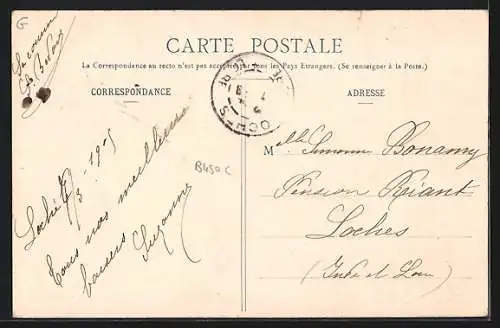 G
CARTE POSTALE
La Correspondance au recto n'est pas acceptée par tous les Pays Etrangers. (Se renseigner à la Poste.)
CORRESPONDANCE
ADRESSE
LOCHES
B450C
Tous nos meilleurs
baisers Suzanne
Melle Bonamy
Pension
Loches
(Indre et Loire)